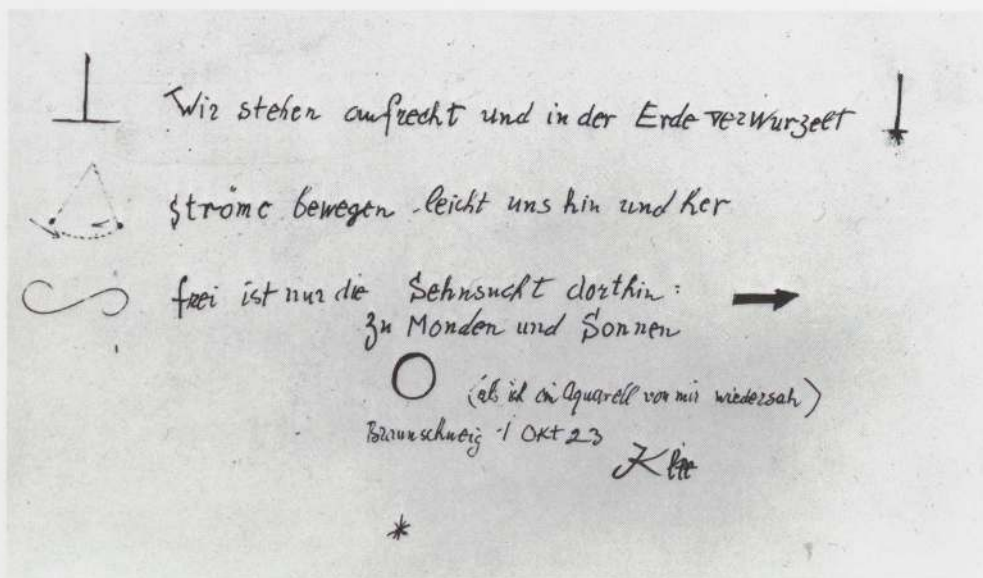 Wir stehen aufrecht und in der Erde verwurzelt
ströme bewegen leicht uns hin und her
frei ist nur die Sehnsucht dorthin:
zu Monden und Sonnen
(als ich ein Aquarell von mir wiedersah)
Braunschweig 1 Okt 23
Klee